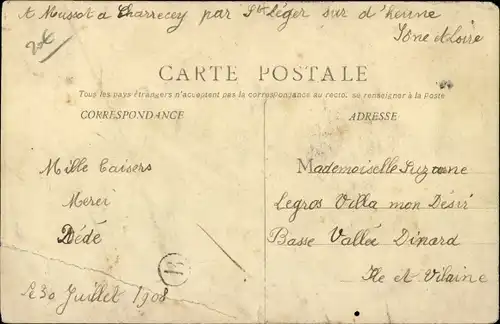 A Mussot à Charrecey par St Léger sur d'heune
Sône et Loire
20c
CARTE POSTALE
Tous les pays étrangers n'acceptent pas la correspondance au recto. se renseigner à la Poste
CORRESPONDANCE
ADRESSE
Mille baisers
Merci
Dédé
le 30 Juillet 1908
B
Mademoiselle Suzanne
Legros Villa mon Désir
Basse Vallée Dinard
Ile et Vilaine